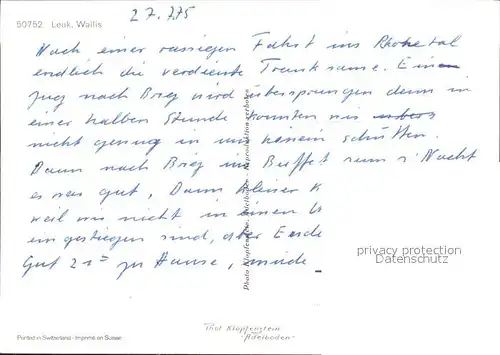 50752 Leuk, Wallis
27.7.75
Nach einer rassigen Fahrt ins Rhonetal
endlich die verdiente Tranksame. Einen
Zug nach Brig wird übersprungen denn in
einer halben Stunde konnten wir
nicht genug in uns hinein schütten.
Dann nach Brig ins Buffet zum z'Nacht
es war gut, Dann kleiner K
weil wir nicht in einen W
eingestiegen sind, aber Ende
Gut 21⁰⁰ zu Hause, müde
privacy protection
Datenschutz
Photo Klopfenstein, Adelboden - Reproduktion verboten
Printed in Switzerland - Imprimé en Suisse
Phot Klopfenstein
-Adelboden-